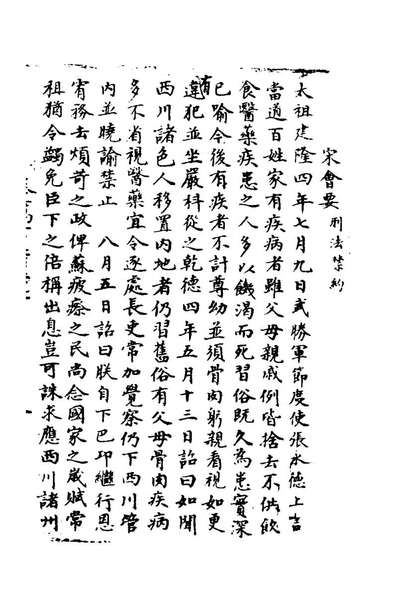 宋會要 刑法 禁約
太祖建隆四年七月九日武勝軍節度使張永德上言
當道百姓家有疾病者雖父母親戚例皆捨去不供飲
食醫藥疾患之人多以饑渴而死習俗既久為患實深
已喻今後有疾者不計尊幼並須骨肉躬親看視如更
有違犯並坐嚴科從之乾德四年五月十三日詔曰如聞
西川諸色人移置內地者仍習舊俗有父母骨肉疾病
多不省視醫藥宜令逐處長吏常加覺察仍下西川管
內並曉諭禁止 八月五日詔曰朕自下巴邛繼行恩
宥務去煩苛之政俾蘇疲瘵之民尚念國家之歲賦常
租猶令蠲免臣下之倍稱出息豈可誅求應西川諸州